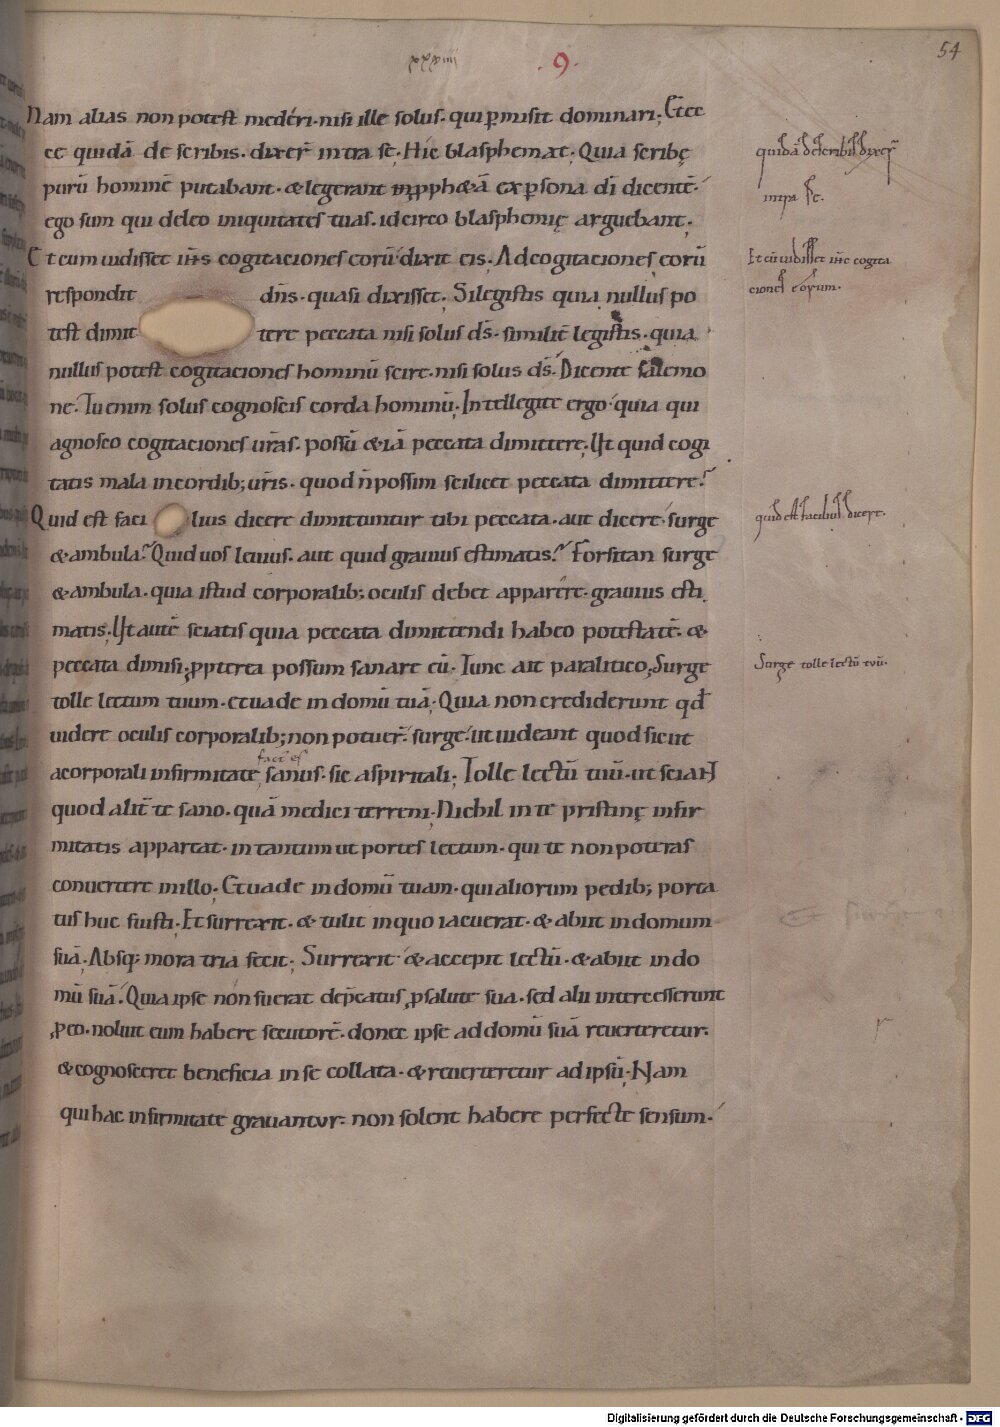 54
xxxiiii
.9.
Nam alias non potest mederi. nisi ille solus. qui p̱misit dominari; Et ec
ce quidā de scribis. dixer̄ intra se. Hic blasphemat; Quia scribę
purū hominē putabant. & legerant in ꝓph&ā ex p̱sona dī dicentē.
ego sum qui deleo iniquitates tuas. idcirco blasphemię arguebant;
Et cum uidisset ih̄s cogitaciones eorū dixit eis; Ad cogitaciones eorū
respondit dn̄s. quasi dixisset; Si legistis quia nullus po
test dimit tere peccata nisi solus ds̄. similit̄ legistis. quia
nullus potest cogitaciones hominū scire. nisi solus ds̄. Dicente salemo
ne. Tu enim solus cognoscis corda hominū; Intellegite ergo quia qui
agnosco cogitaciones ur̄as. possū & iā peccata dimittere; Ut quid cogi
tatis mala in cordib; ur̄is. quod n̄ possim scilicet peccata dimittere?
Quid est faci lius dicere dimittuntur tibi peccata. aut dicere surge
& ambula? Quid uos leuius. aut quid grauius estimatis? Forsitan surge
& ambula. quia istud corporalib; oculis debet apparere. grauius esti
matis; Ut autē sciatis quia peccata dimittendi habeo potestatē. &
peccata dimisi; ꝓpterea possum sanare eū. Tunc ait paralitico; Surge
tolle lectum tuum. et uade in domū tuā; Quia non crediderunt qđ
uidere oculis corporalib; non potuer̄. surge ut uideant quod sicut
fact' es
a corporali infirmitate sanus. sic a spiritali; Tolle lectū tuū. ut sciant
quod alit̄ te sano. quā medici terreni. Nichil in te pristinę infir
mitatis appareat. in tantum ut portes lectum. qui te non poteras
conuertere in illo; Et uade in domū tuam. qui aliorum pedib; porta
tus huc fuisti. Et surrexit. & tulit in quo iacuerat. & abiit in domum
suā. Absq; mora tria fecit; Surrexit & accepit lectū. & abiit in do
mū suā. Quia ipse non fuerat dep̄catus ꝓ salute sua. sed alii intercesserunt
ꝓ eo. noluit eum habere secutorē. donec ipse ad domū suā reuerteretur.
& cognosceret beneficia in se collata. & reuerteretur ad ipsū; Nam
qui hac infirmitate grauantur. non solent habere perfecte sensum.
quidā de scribis dixer̄
intra se.
Et cū uidisset ih̄c cogita
ciones eorum.
quid est facilius dicere.
Surge tolle lectū tuū.
Digitalisierung gefördert durch die Deutsche Forschungsgemeinschaft - DFG